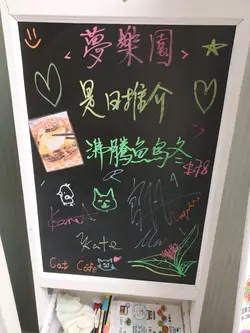 <夢樂園>
是日推介
沸騰魚烏冬
$78
Kate
Cat Cafe